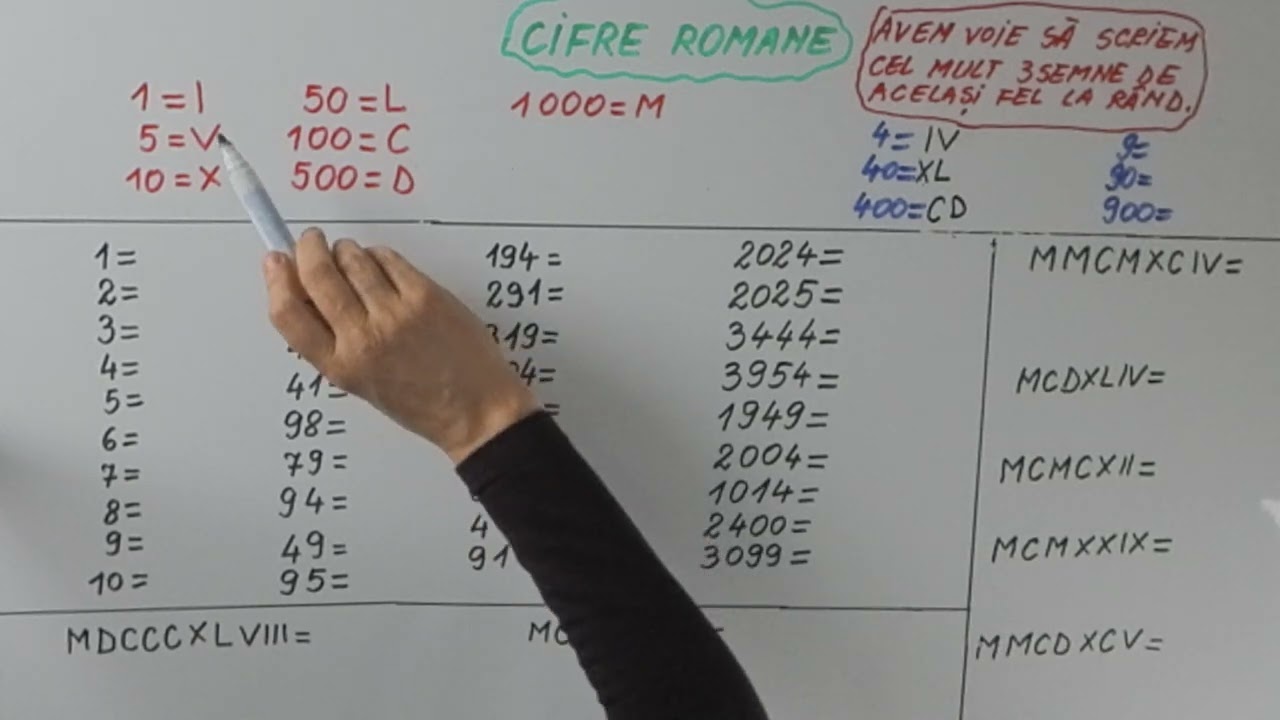 CIFRE ROMANE
AVEM VOIE SĂ SCRIEM
CEL MULT 3 SEMNE DE
ACELAȘI FEL LA RÂND.
1 = I
5 = V
10 = X
50 = L
100 = C
500 = D
1000 = M
4 = IV
40 = XL
400 = CD
9 =
90 =
900 =
1 =
2 =
3 =
4 =
5 =
6 =
7 =
8 =
9 =
10 =
41 =
98 =
79 =
94 =
49 =
95 =
194 =
291 =
2024 =
2025 =
3444 =
3954 =
1949 =
2004 =
1014 =
2400 =
3099 =
MMCMXCIV =
MCDXLIV =
MCMCXII =
MCMXXIX =
MMCDXCV =
MDCCCXLVIII =